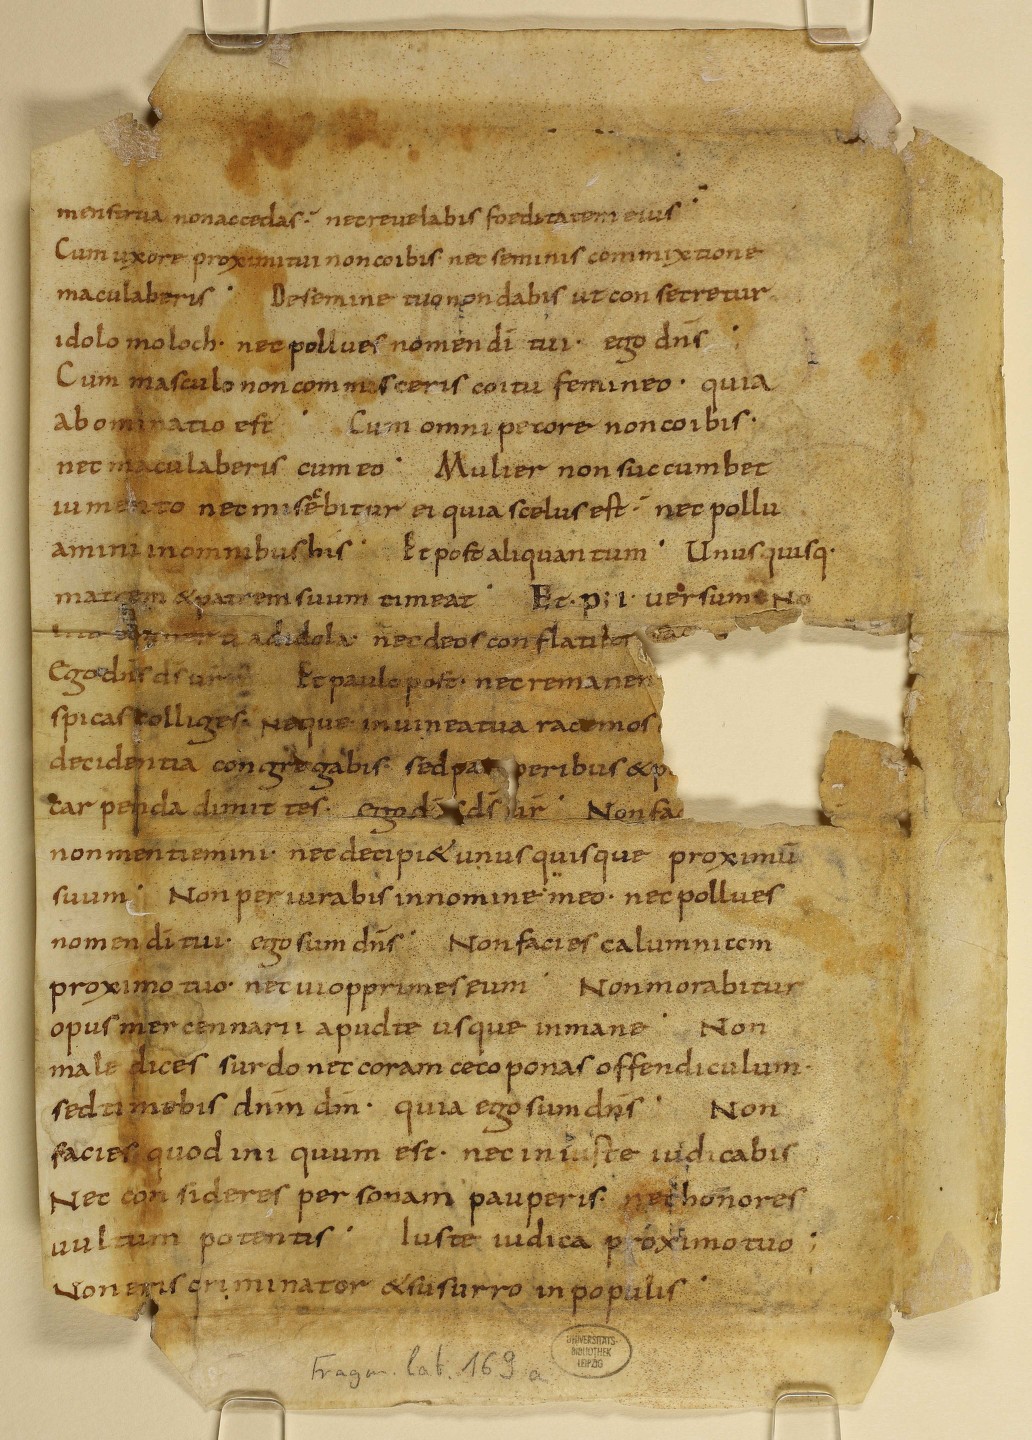 menstrua non accedas· nec revelabis foeditatem eius·
Cum uxore proximi tui non coibis nec seminis commixtione
maculaberis· De semine tuo non dabis ut consecretur
idolo moloch· nec pollues nomen dī tui· ego dn̄s·
Cum masculo non commisceris coitu femineo· quia
abominatio est· Cum omni pecore non coibis·
nec maculaberis cum eo· Mulier non succumbet
iumento nec misebitur ei quia scelus est· nec pollu
amini in omnibus his· Et post aliquantum· Unusquisq·
matrem & patrem suum timeat· Et· p· i· versum· No
ad idola· nec deos conflatiles
Ego dn̄s ds̄ vr̄ Et paulo post· nec remanen
spicas colliges· Neque in vinea tua racemos
decidentia congregabis· sed pauperibus & p
carpenda dimittes· ego dn̄s ds̄ vr̄· Non fac
non mentiemini· nec decipi& unusquisque proximū
suum· Non periurabis in nomine meo· nec pollues
nomen dī tui· ego sum dn̄s· Non facies calumniem
proximo tuo· nec vi opprimes eum· Non morabitur
opus mercennarii apud te usque in mane· Non
maledices surdo nec coram ceco ponas offendiculum·
sed timebis dnm̄ dm̄· quia ego sum dn̄s· Non
facies quod iniquum est· nec iniuste iudicabis
Nec consideres personam pauperis· nec honores
vultum potentis· Iuste iudica proximo tuo;
Non eris criminator & susurro in populis·
Fragm. lat. 169 a
UNIVERSITÄTS-
BIBLIOTHEK
LEIPZIG